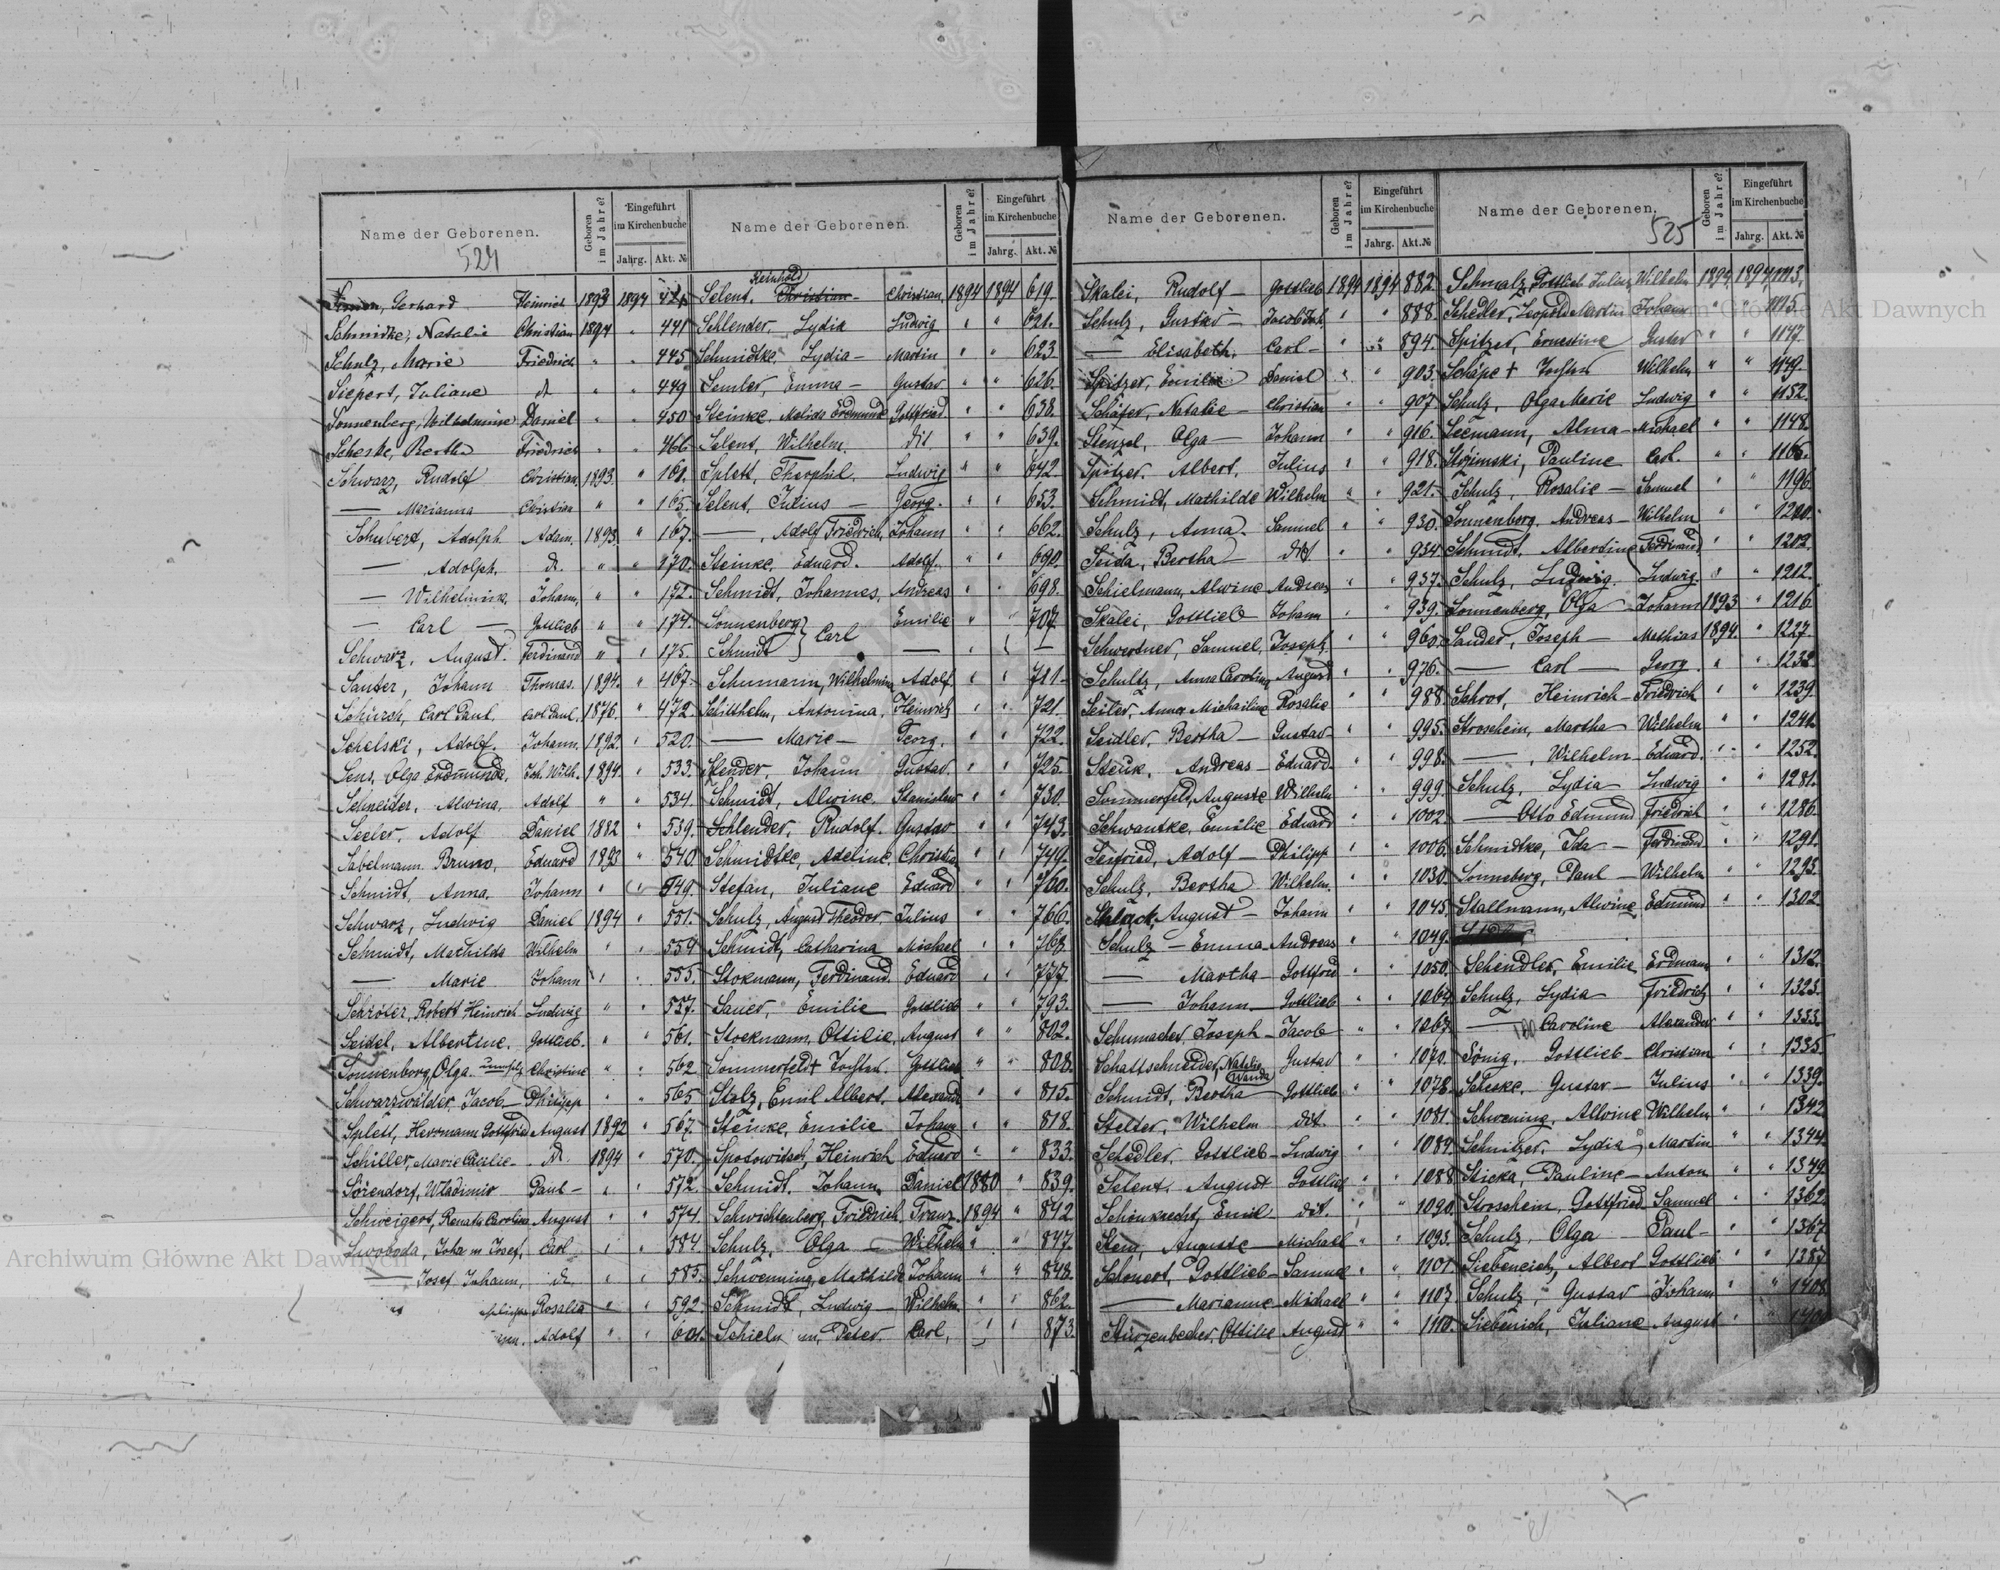 Name der Geborenen.
524
Geboren im Jahre?
Eingeführt im Kirchenbuche
Jahrg. Akt. №
Gerhard Heinrich 1893 1894
Schmidke, Natalie Christian 1894 " 441
Schulz, Marie Friedrich " " 445
Siepert, Juliane d. " " 449
Sonnenberg, Wilhelmine Daniel " " 450
Scheske, Bertha Friedrich " " 466
Schwarz, Rudolf Christian 1893. "
— Marianna Christian " " 165.
Schubert, Adolph Adam. 1893. " 167.
— Adolph. d. " " 170.
— Wilhelmine, Johann, " " 172.
— Carl — Gottlieb " " 174.
Schwarz, August. Ferdinand " " 175.
Sauter, Johann Thomas. 1894. " 467.
Schürch, Carl Paul. Carl Paul. 1876. " 472.
Schelski, Adolf. Johann. 1892. " 520.
Sens, Olga Erdmunde. Joh. Wilh. 1894. " 533.
Schneider, Alwina, Adolf " " 534.
Seeler, Adolf Daniel 1882 " 539.
Sabelmann Bruno, Eduard 1893 " 540.
Schmidt, Anna, Johann " " 549.
Schwarz, Ludwig Daniel 1894 " 551.
Schmidt, Mathilda Wilhelm " " 554
— Marie Johann " " 555.
Schröter, Robert Heinrich Ludwig " " 557.
Seidel, Albertine. Gottlieb. " " 561.
Sonnenberg, Olga Christine " " 562
Schwarzwälder, Jacob — Philipp " " 565
Splett, Hermann Gottfried August 1892 " 567.
Schiller, Marie Cäcilie — d. 1894 " 570.
Sörendorf, Wladimir Paul — " " 572.
Schweigert, Renate Carolina August " " 574
Swoboda, Joha n Josef, Carl " " 584
— Josef Johann, d. " " 585.
Rosalia " " 592.
Adolf " " 601.
Name der Geborenen.
Geboren im Jahre?
Eingeführt im Kirchenbuche
Jahrg. Akt. №
Reinhold
Selent, Christian — Christian 1894 1894 619.
Schlender, Lydia Ludwig " " 621.
Schmidtke, Lydia — Martin " " 623.
Semler, Emma — Gustav " " 626.
Steinke, Malida Erdmunde Gottfried " " 638.
Selent, Wilhelm. dit " " 639.
Splett, Theophil. Ludwig " " 642.
Selent, Julius — Georg. " " 653.
—, Adolf Friedrich, Johann " " 662.
Steinke, Eduard. Adolf. " " 690.
Schmidt, Johannes, Andreas " " 698.
Sonnenberg } Carl Emilie " " 707.
Schmidt } — " " —
Schumann, Wilhelmina Adolf " " 711.
Schitthelm, Antonina, Heinrich " " 721.
— Marie — Georg. " " 722.
Stender, Johann Gustav. " " 725.
Schmidt, Alwine. Stanislaw " " 730.
Schlender, Rudolf. Gustav " " 743.
Schmidtke, Adeline, Christia " " 749.
Stefan, Juliane Eduard " " 760.
Schulz, August Theodor, Julius " " 766.
Schmidt, Catharina Michael " " 768.
Stokmann, Ferdinand. Eduard " " 777.
Sauer, Emilie Gottlieb " " 793.
Stockmann, Ottilie, August " " 802.
Sommerfeld + Gottlieb " " 808.
Stolz, Emil Albert. Alexand " " 815.
Steinke, Emilie Johann " " 818.
Heinrich Eduard " " 833.
Schmidt, Johann. Daniel 1880 " 839.
Schwichtenberg, Friedrich Franz. 1894 " 842
Schulz, Olga — Wilhelm " " 847.
Schwenning, Mathilde Johann " " 848.
Schmidt, Ludwig — Wilhelm " " 862.
Peter. Carl, " " 873.
Name der Geborenen.
Geboren im Jahre?
Eingeführt im Kirchenbuche
Jahrg. Akt. №
Skalei, Rudolf — Gottlieb 1894 1894 882.
Schulz, Gustav — Jacob Joh. " " 888.
— Elisabeth, Carl — " " 894.
Spitzer, Emilie Daniel " " 903.
Schäfer, Natalie — Christian " " 907
Stenzel, Olga — Johann " " 916.
Spitzer, Albert, Julius " " 918.
Schmidt, Mathilde Wilhelm " " 921.
Schulz, Anna — Samuel " " 930.
Seida, Bertha — dit " " 934.
Schielmann, Alwine Andreas " " 937.
Skalei, Gottlieb — Johann " " 939.
Schwertner, Samuel, Joseph, " " 960.
Schultz, Anna Carolina August " " 976.
Seiler, Anna Michailine Rosalie " " 988.
Seidler, Bertha — Gustav " " 995.
Steuk, Andreas — Eduard. " " 998.
Sommerfeld, Auguste Wilhelm " " 999.
Schwantke, Emilie Eduard " " 1002.
Seifried, Adolf — Philipp " " 1006.
Schulz, Bertha Wilhelm. " " 1030.
August — Johann " " 1045.
Schulz — Emma — Andreas " " 1049.
— Martha — Gottfried " " 1050.
— Johann — Gottlieb " " 1064
Schumacher, Joseph — Jacob " " 1067.
Schattschneider, Natalie Wanda Gustav " " 1070.
Schmidt, Bertha Gottlieb " " 1078.
Stelter, Wilhelm dit. " " 1081.
Schedler, Gottlieb — Ludwig " " 1084.
Selent, August Gottlieb " " 1088
Schönknecht, Emil — dit. " " 1090.
Stein, Auguste — Michael " " 1093.
Schonert, Gottlieb — Samuel " " 1101.
— Marianne — Michael " " 1107
Stürzenbecher, Ottilie August " " 1110.
Name der Geborenen.
525
Geboren im Jahre?
Eingeführt im Kirchenbuche
Jahrg. Akt. №
Schmalz, Gottlieb Julius Wilhelm 1894 1894 1113.
Schedler, Leopold Martin Johann " " 1115.
Spitzer, Ernestine Gustav " " 1147.
Schäpe + Wilhelm " " 1149.
Schulz, Olga Marie Ludwig " " 1152.
Seemann, Alma — Michael " " 1148.
Pauline Carl. " " 1166.
Schulz, Rosalie — Samuel " " 1196.
Sonnenberg, Andreas — Wilhelm " " 1200.
Schmidt, Albertine Ferdinand " " 1202.
Schulz, Ludwig. Ludwig. " " 1212.
Sonnenberg, Olga Johann 1893 " 1216
Sander, Joseph — Mathias 1894. " 1227.
— Carl — Georg " " 1232.
Schroot, Heinrich — Friedrich " " 1239.
Stroschein, Martha — Wilhelm " " 1241.
—, Wilhelm — Eduard. " " 1252.
Schulz, Lydia — Ludwig " " 1281.
— Otto Edmund Friedrich " " 1286.
Schmidtke, Ida — Ferdinand " " 1291.
Sonneberg, Paul — Wilhelm " " 1293.
Stallmann, Alwine, Edmund " " 1302.
Schendler, Emilie, Erdmann " " 1312.
Schulz, Lydia — Friedrich " " 1323.
— Caroline Alexander " " 1333.
Sönig, Gottlieb — Christian " " 1335.
Seleske, Gustav — Julius " " 1339.
Schwening, Allwine Wilhelm " " 1342
Schnitzer, Lydia, Martin " " 1344.
Sticka, Pauline — Anton " " 1349.
Stroschein, Gottfried Samuel " " 1362.
Schulz, Olga Paul — " " 1367
Siebeneich, Albert Gottlieb " "
Schulz, Gustav — Johann " " 1408
Siebenich, Juliane August " "
Archiwum Główne Akt Dawnych
Archiwum Główne Akt Dawnych